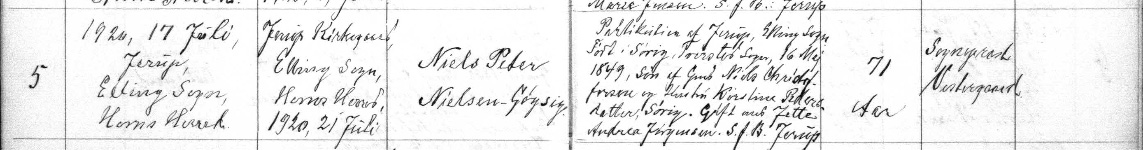 Maria Jensen. S. f. B.: Jerup
5
1920, 17 Juli,
Jerup,
Elling Sogn,
Horns Herred.
Jerup Kirkegaard,
Elling Sogn,
Horns Herred,
1920, 21 Juli
Niels Peter
Nielsen-Göysig.
Partikulier af Jerup, Elling Sogn
Född i Sörig, Sogn, 16 Maj
1849, Søn af Gmd Niels Christof-
fersen og Hustru Kirstine Peders-
datter, Sörig. Gift med Jette
Andrea Jörgensen. S. f. B. Jerup
71
Aar
Sognepræst
Vestergaard.